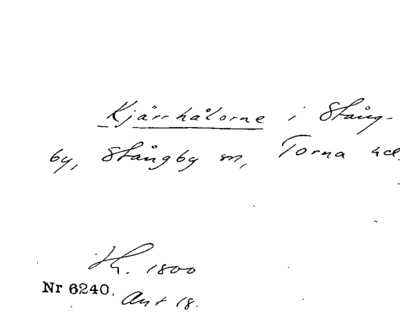 Kjärrhålorne i Stång-
by, Stångby sn, Torna hd.
H. 1800
Nr 6240. Ant 18.